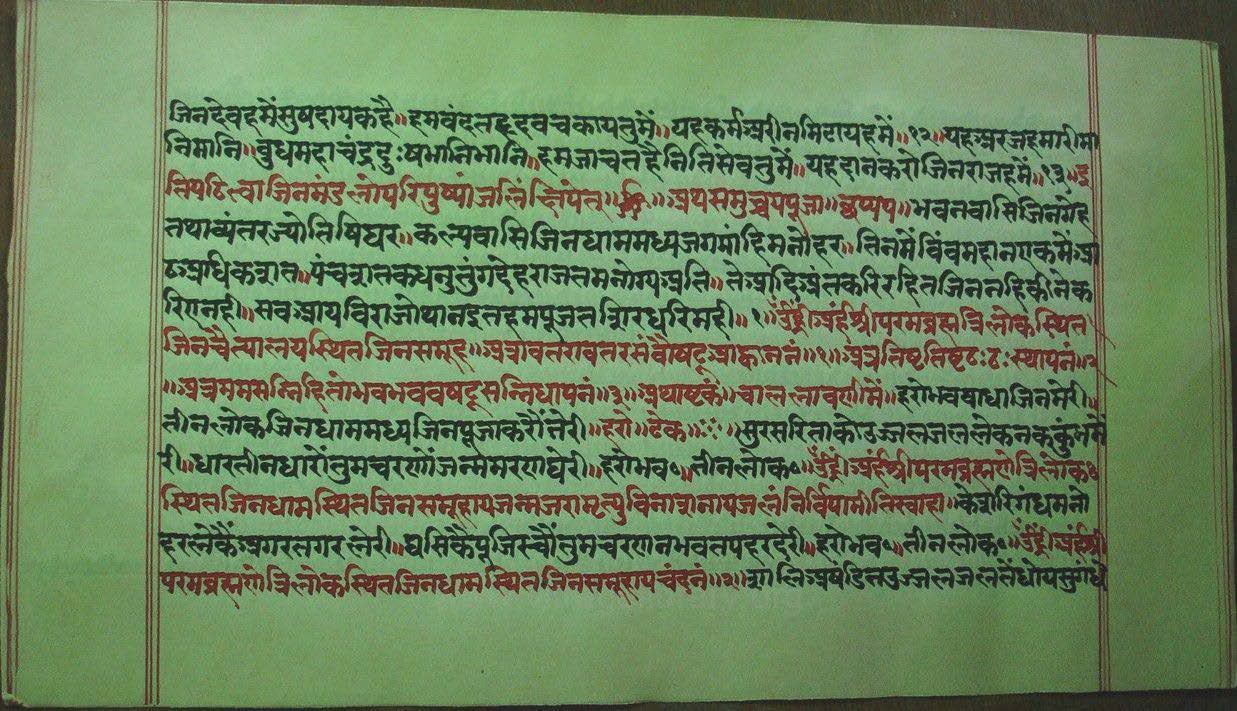 जिनदेवहमेंसुषदायकहै॥हमवंदतहृदवचकायतुमें॥यहकर्मअरीनमिटायहमें॥१२॥यहअरजहमारीमा
निमानि॥वुधमहाचंद्रदुःषभानिभानि॥हमजाचतहैनितिसेवतुमें॥यहदानकरोजिनराजहमें॥१३॥इ
तिपठित्वाजिनमंडलोपरिपुष्पांजलिंक्षिपेत्॥अथसमुच्चयपूजा॥छप्पय॥भवनवासिजिनगेह
तथाव्यंतरज्योतिषिघर॥कल्पवासिजिनधाममध्यजगमांहिमनोहर॥तिनमेंविंवमहानएकमेंआ
ठअधिकशत॥पंचशतकधनुतुंगदेहराजतमनोग्यअति॥तेआदिअंतकरिरहितजिननहिकीनेक
रिएनही॥सवआयविराजोथानइनहमपूजतशिरधरिमही॥१॥ॐह्रींअर्हंश्रीपरमव्रह्मत्रिलोकस्थित
जिनचैत्यालयस्थितजिनसमूह॥अत्रावतरावतरसंवौषट्आह्वाननं॥१॥अत्रतिष्टतिष्टठःठःस्थापनं॥२
॥अत्रममसन्निहितोभवभववषट्सन्निधापनं॥३॥अथाष्टकं॥चाललावणीमें॥हरोभववाधाजिनमेरी॥
तीनलोकजिनधाममध्यजिनपूजाकरौंतेरी॥हरो॥टेक॥सुरसरिताकोउज्जलजललेकनककुंभमें
री॥धारतीनधारोंतुमचरणोंजन्ममरणघेरी॥हरोभव॰॥तीनलोक॰ॐह्रींअर्हंश्रीपरमव्रह्मणेत्रिलोक
स्थितजिनधामस्थितजिनसमूहायजन्मजरामृत्युविनाशनायजलंनिर्विपामीतिस्वाहा॥केशरिगंधमनो
हरलेकैंअगरतगरलेरी॥घसिकैंपूजिस्चौंतुमचरणनभवतपहरदेरी॥हरोभव॰॥तीनलोक॰ॐह्रींअर्हंश्री
परमव्रह्मणेत्रिलोकस्थितजिनधामस्थितजिनसमूहायचंदनं॥२॥शालिअषंडितउज्जलजलतेंधोयसुगंधे